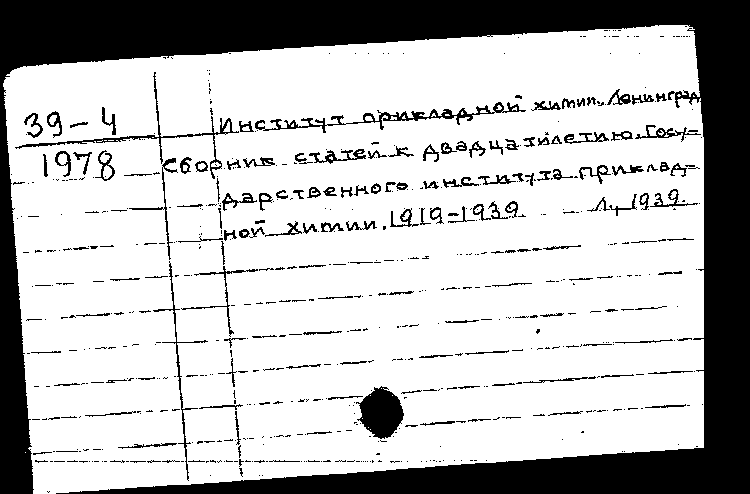 39-4
1978
Институт прикладной химии. Ленинград
Сборник статей к двадцатилетию. Госу=
дарственного института приклад=
ной химии. 1919-1939 Л., 1939.